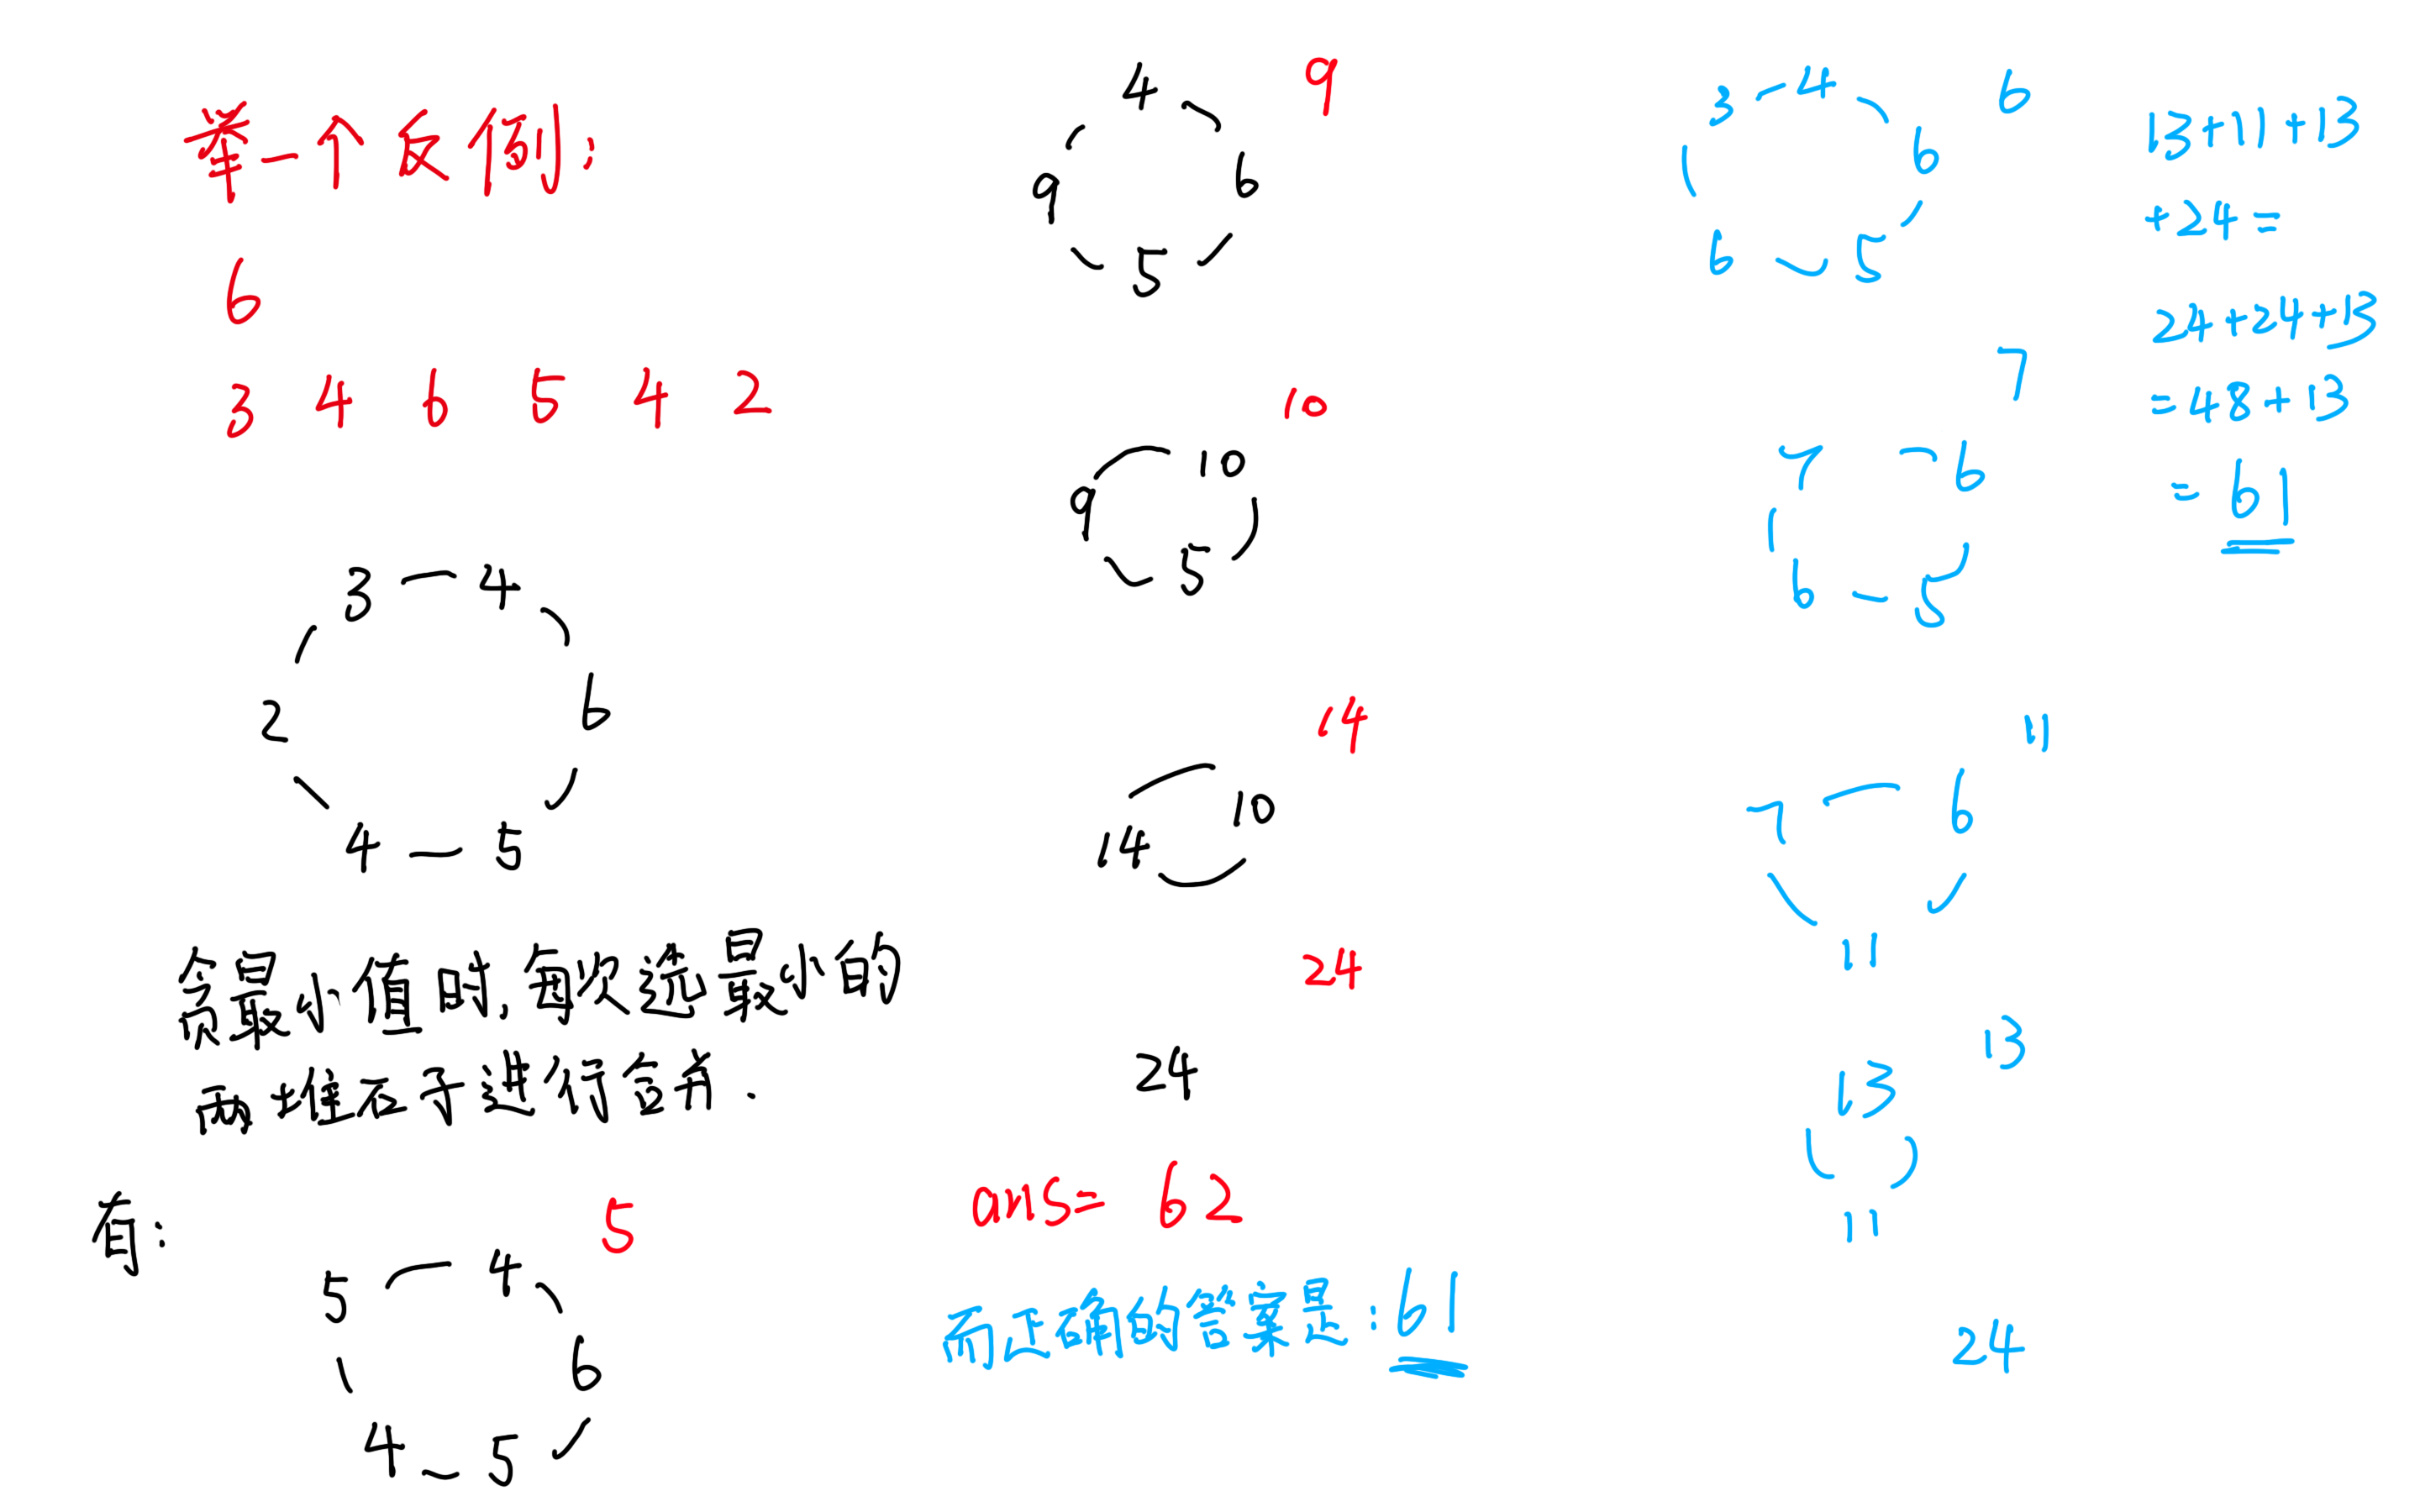 举一个反例:
6
3 4 6 5 4 2
3 4
2 6
4 5
贪最小值时,每次选最小的
两堆石子进行合并.
有:
5
5 4
6
4 5
9
4
9 6
5
10
10
9
5
14
10
14
24
24
ans= 62
而正确的答案是:61
6
3 4
6
6 5
7
7 6
6 5
11
7 6
11
13
13
11
24
13+11+13
+24=
24+24+13
=48+13
=61